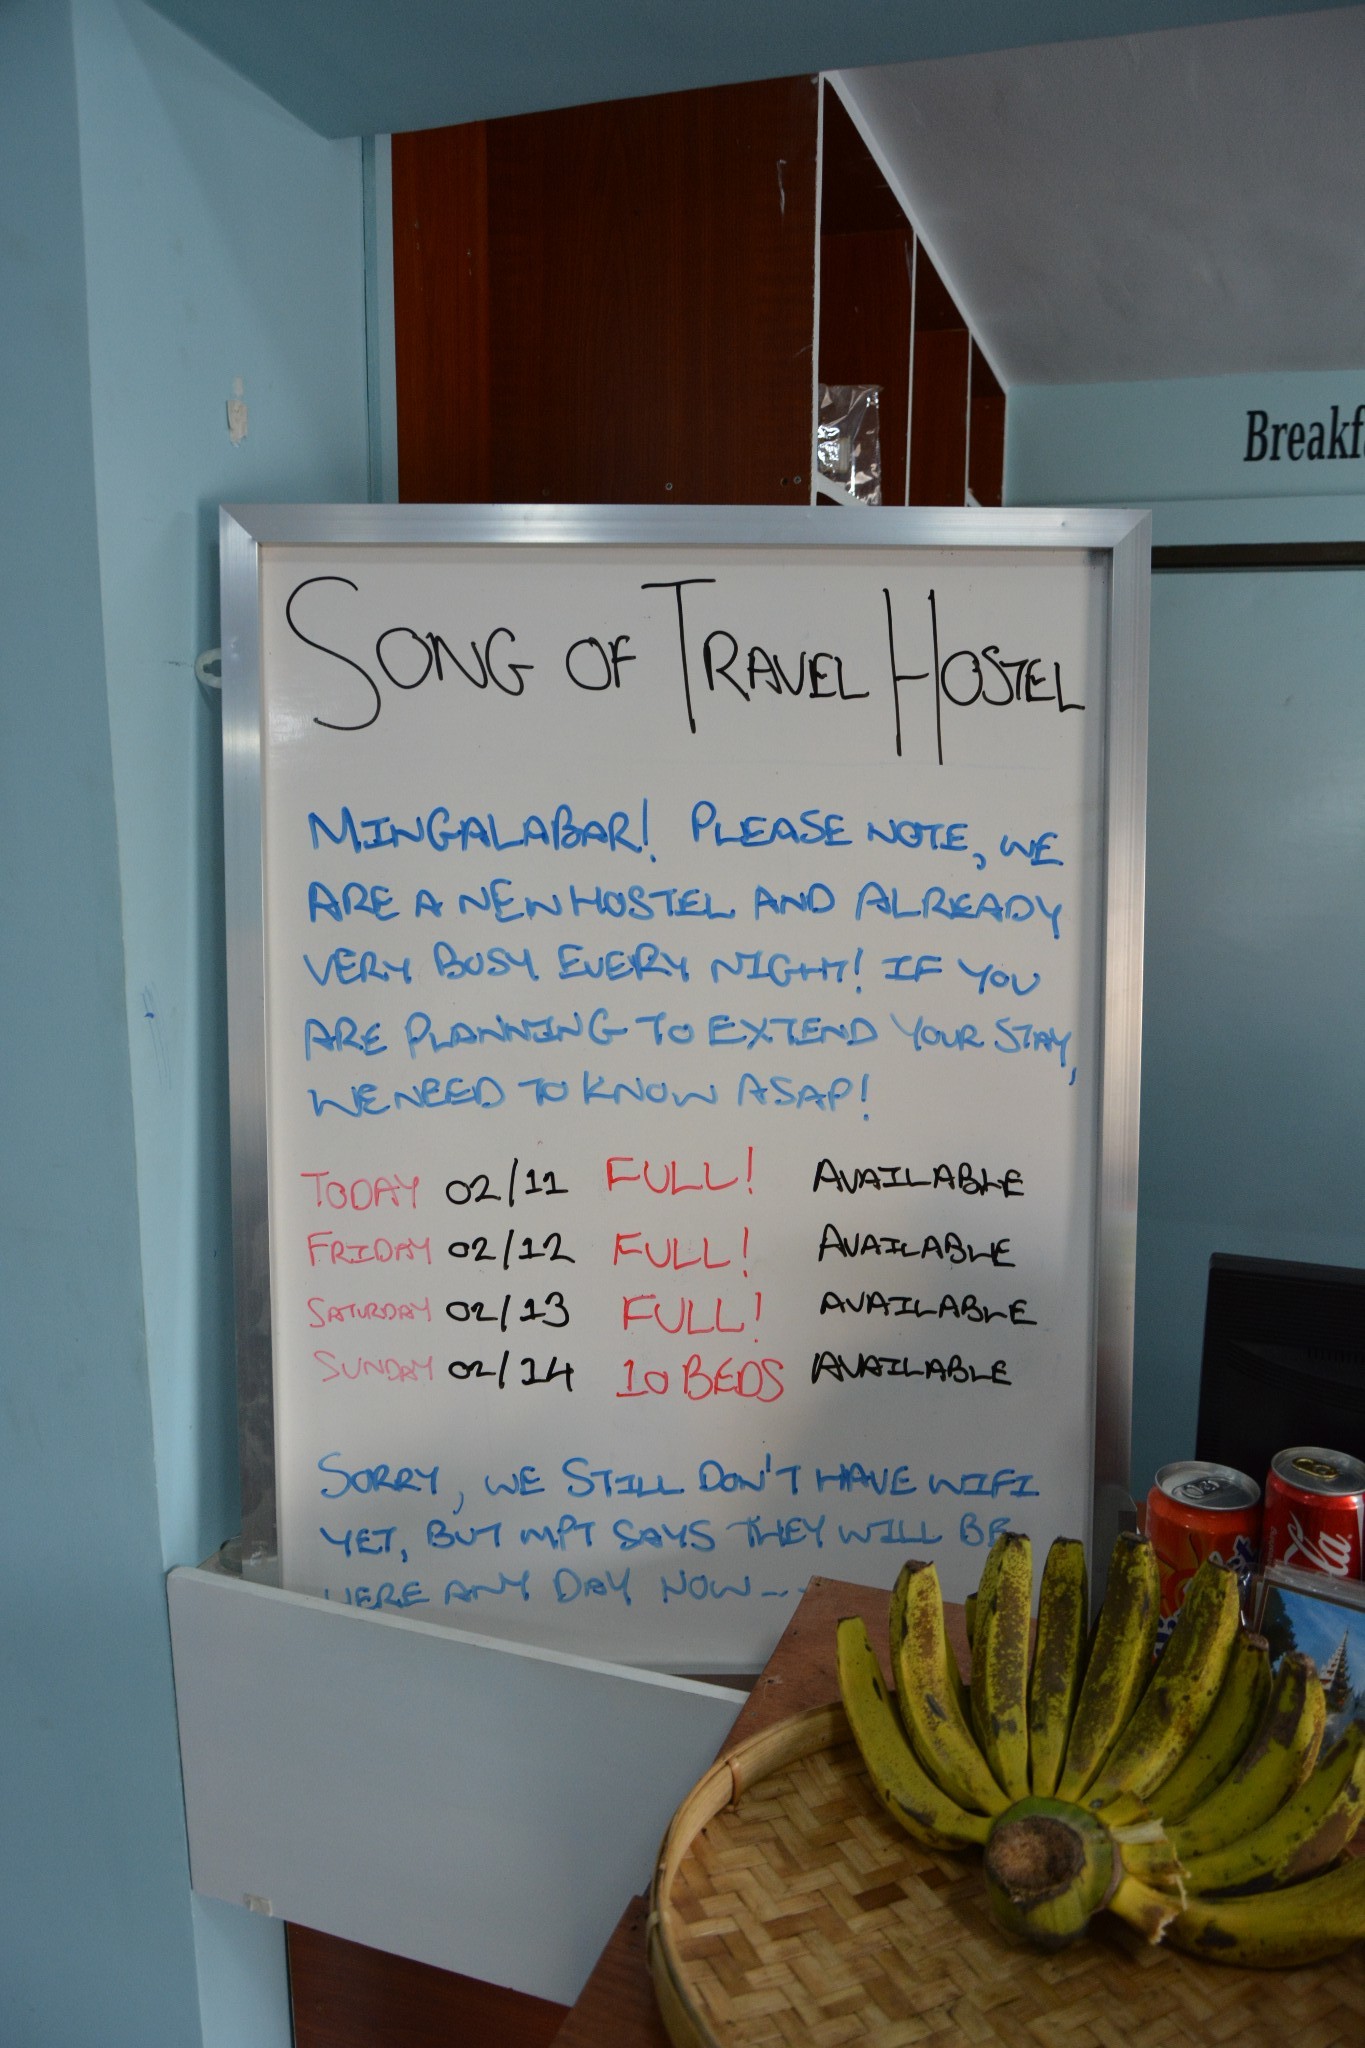 Breakf
SONG OF TRAVEL HOSTEL
MINGALABAR! PLEASE NOTE, WE
ARE A NEW HOSTEL AND ALREADY
VERY BUSY EVERY NIGHT! IF YOU
ARE PLANNING TO EXTEND YOUR STAY,
WE NEED TO KNOW ASAP!
TODAY 02/11 FULL! AVAILABLE
FRIDAY 02/12 FULL! AVAILABLE
SATURDAY 02/13 FULL! AVAILABLE
SUNDAY 02/14 10 BEDS AVAILABLE
SORRY, WE STILL DON'T HAVE WIFI
YET, BUT MPT SAYS THEY WILL BE
HERE ANY DAY NOW...